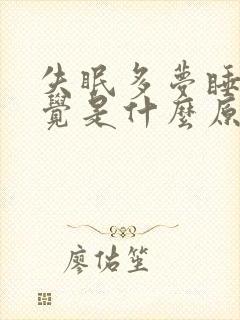 失眠多夢睡
覺是什麼原
廖佑笙